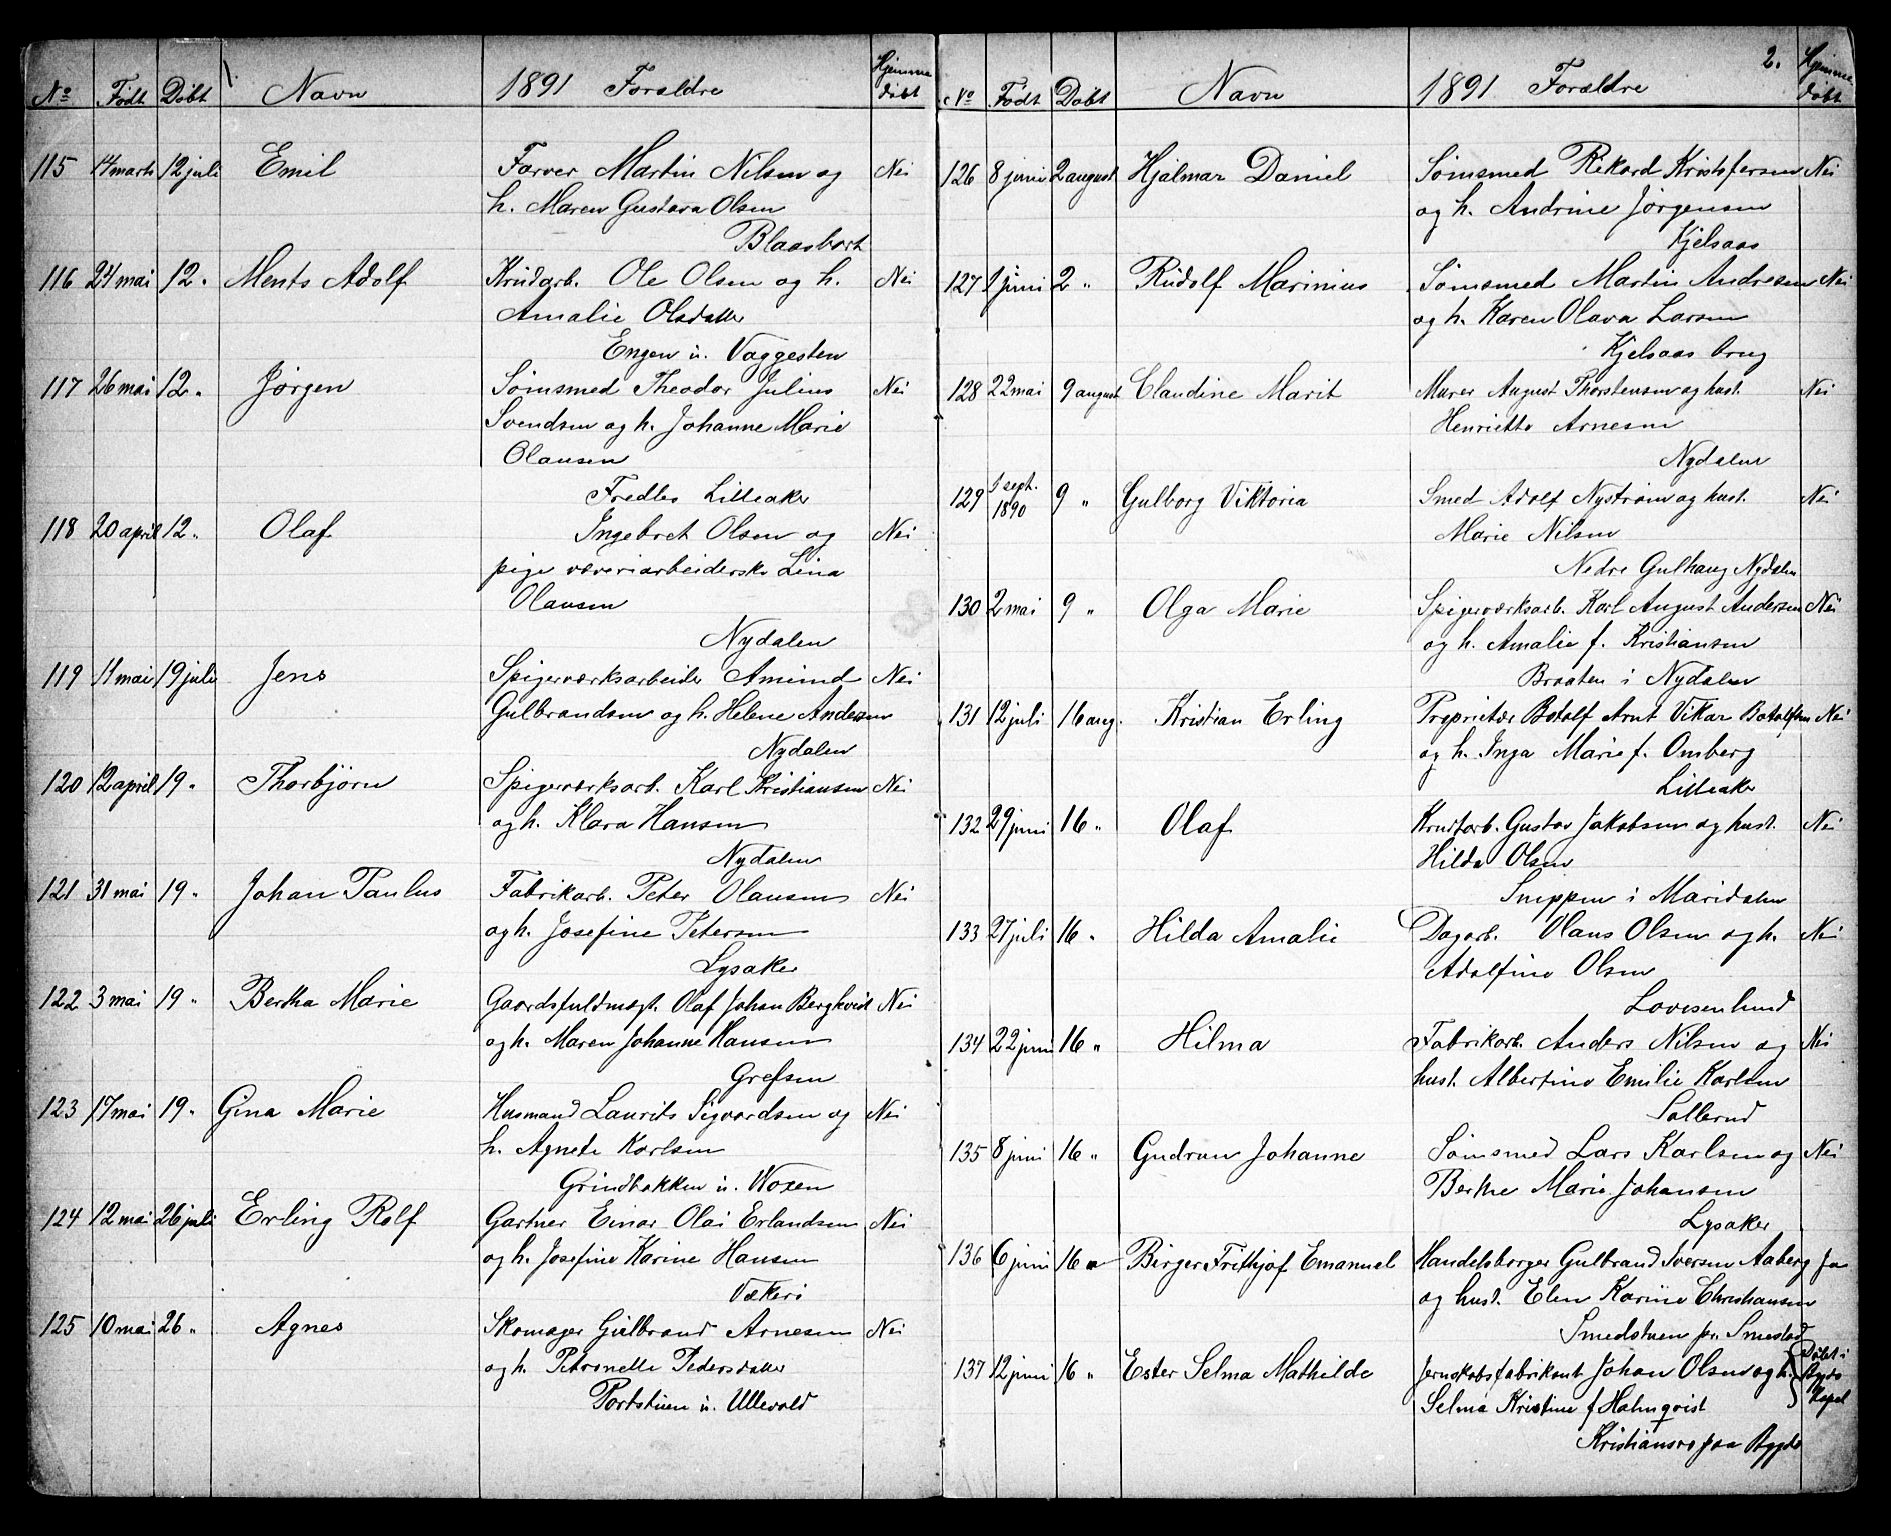 1.
No Født Døbt Navn 1891 Forældre Hjemme døbt
115 14 marts 12 juli Emil Farver Martin Nilsen og Nei
h. Maren Gustava Olsen
116 24 mai 12 " Ments Adolf Krudarb. Ole Olsen og h. Nei
Amalie Olsdatter
Engen u. Vaggesten
117 26 mai 12 " Jørgen Sømsmed Theodor Julius Nei
Svendsen og h. Johanne Marie
Olausen
Lilleaker
118 20 april 12 " Olaf Ingebret Olsen og Nei
pige væveriarbeiderske Lina
Olausen
Nydalen
119 11 mai 19 juli Jens Spigerværksarbeider Amund Nei
Gulbrandsen og h. Helene Andersen
Nydalen
120 12 april 19 " Thorbjørn Spigerværksarb. Karl Kristiansen Nei
og h. Klara Hansen
Nydalen
121 31 mai 19 " Johan Paulus Fabrikarb. Peter Olausen Nei
og h. Josefine Petersen
Lysaker
122 3 mai 19 " Bertha Marie Gaardsfuldmægt. Olaf Johan Bergkvist Nei
og h. Maren Johanne Hansen
Grefsen
123 17 mai 19 " Gina Marie Husmand Laurits Sigvardsen og Nei
h. Agnete Karlsen
Grindbakken u. Woxen
124 12 mai 26 juli Erling Rolf Gartner Einar Olai Erlandsen Nei
og h. Josefine Karine Hansen
Vækerø
125 10 mai 26 " Agnes Skomager Gulbrand Arnesen Nei
og h. Petronelle Pedersdatter
Portstuen u. Ullevold
2.
No Født Døbt Navn 1891 Forældre Hjemme døbt
126 8 juni 2 august Hjalmar Daniel Sømsmed Rikard Kristofersen Nei
og h. Andrine Jørgensen
Kjelsaas
127 1 juni 2 " Rudolf Marinius Sømsmed Martin Andresen Nei
og h. Karen Olava Larsen
Kjelsaas brug
128 22 mai 9 august Claudine Marit Murer August Thorstensen og hust. Nei
Henriette Arnesen
Nydalen
129 sept. 1890 9 " Gulborg Viktoria Smed Adolf Nystrøm og hust. Nei
Marie Nilsen
Nedre Gulhaug Nydalen
130 2 mai 9 " Olga Marie Spigerværksarb. Karl August Andersen Nei
og h. Amalie f. Kristiansen
Braaten i Nydalen
131 12 juli 16 aug. Kristian Erling Proprietær Botolf Arnt Viktor Botolfsen Nei
og h. Inga Marie f. Omberg
Lilleaker
132 29 juni 16 " Olaf Krudtarb. Gustav Jakobsen og hust. Nei
Hilda Olsen
Snippen i Maridalen
133 27 juli 16 " Hilda Amalie Dagarb. Olaus Olsen og h. Nei
Adolfine Olsen
Lovisenlund
134 22 juni 16 " Hilma Fabrikarb. Anders Nilsen og Nei
hust. Albertine Emilie Karlsen
Sollerud
135 8 juni 16 " Gudrun Johanne Sømsmed Lars Karlsen og Nei
Berthe Marie Johansen
Lysaker
136 6 juni 16 " Birger Frithjof Emanuel Handelsborger Gulbrand Iversen Aaberg Ja
og hust. Elen Karine Christiansen
Smedstuen pr. Smestad
137 12 juni 16 " Ester Selma Mathilde Jernskabsfabrikant Johan Olsen og h. Døbt i Bygdø Kapel
Selma Kristine f Holmqvist
Kristiansro paa Bygdø